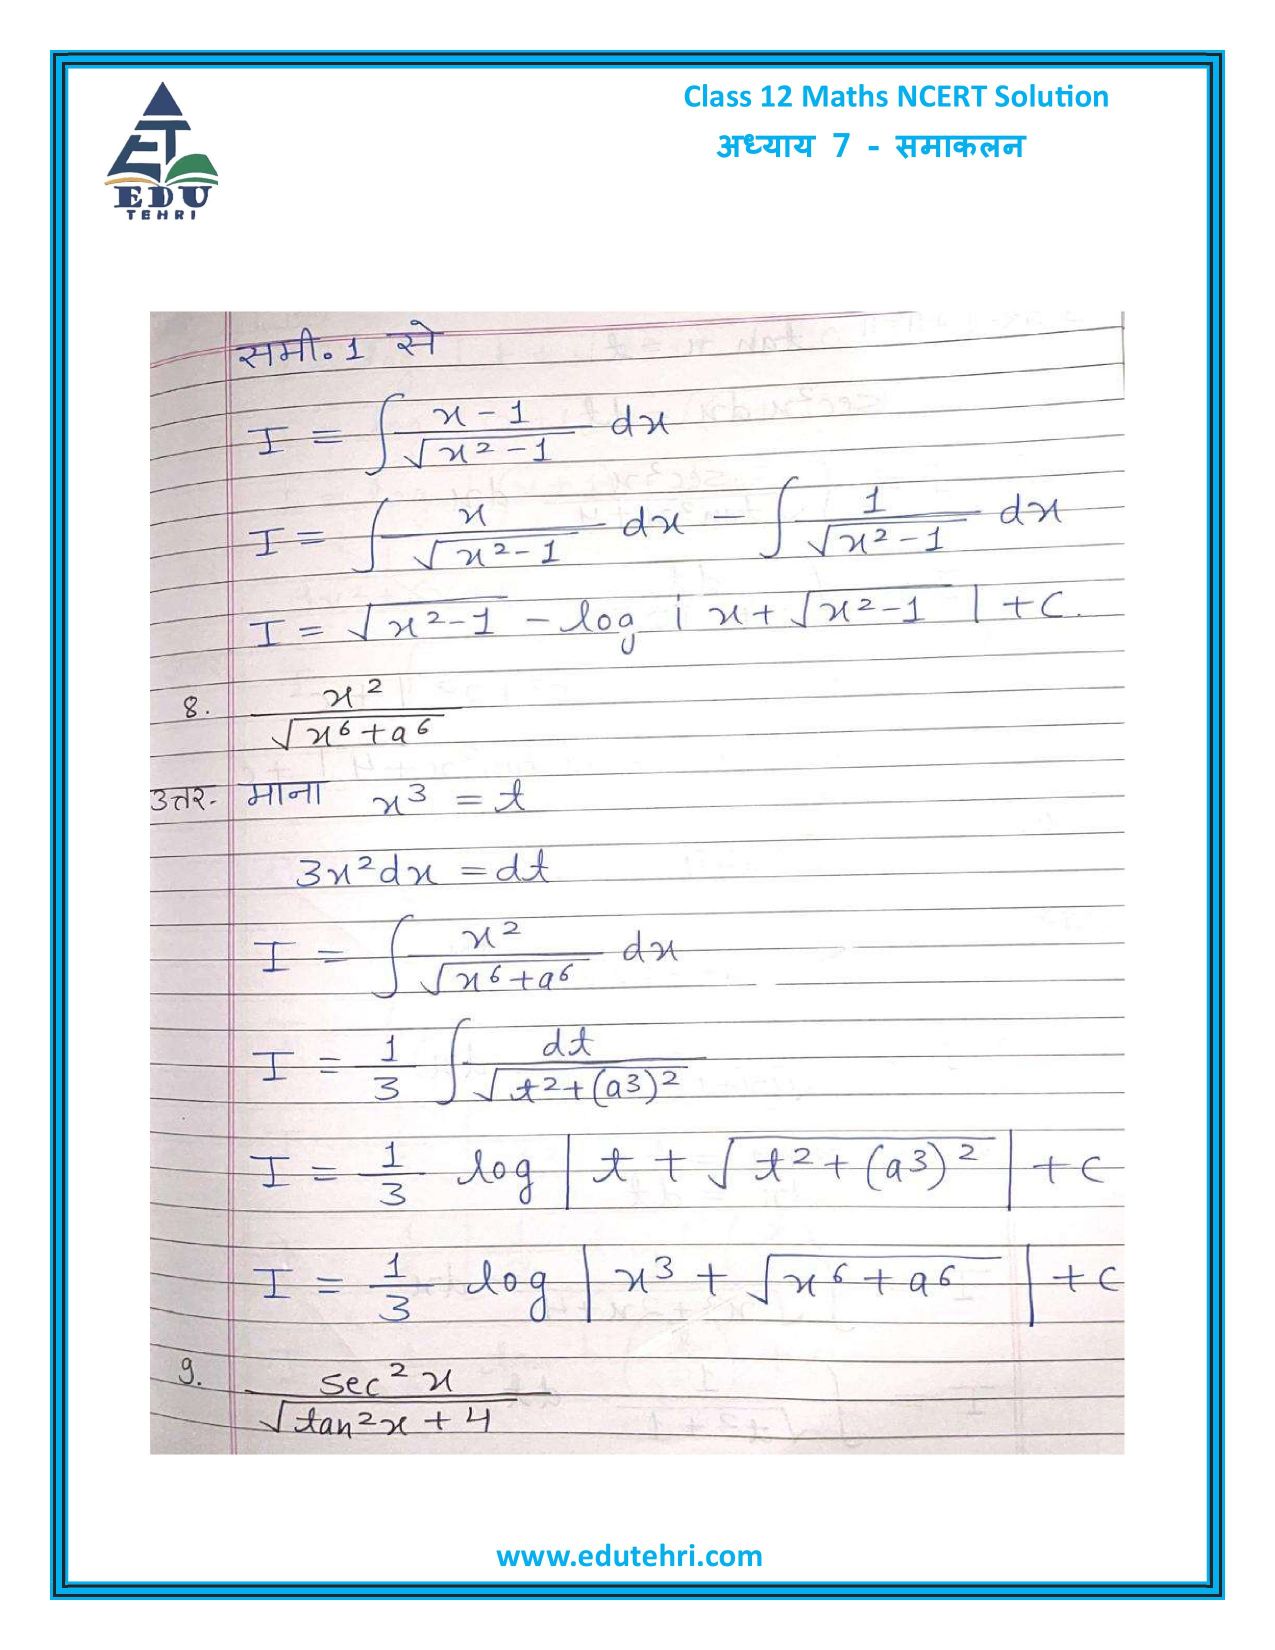 Class 12 Maths NCERT Solution
अध्याय 7 - समाकलन
EDU
TEHRI
समी. 1 से
I = ∫ x-1 / √(x²-1) dx
I = ∫ x / √(x²-1) dx - ∫ 1 / √(x²-1) dx
I = √(x²-1) - log | x + √(x²-1) | + C.
8. x² / √(x⁶+a⁶)
उत्तर- माना x³ = t
3x²dx = dt
I = ∫ x² / √(x⁶+a⁶) dx
I = 1/3 ∫ dt / √(t²+(a³)²)
I = 1/3 log | t + √(t²+(a³)²) | + C
I = 1/3 log | x³ + √(x⁶+a⁶) | + C
9. sec²x / √(tan²x+4)
www.edutehri.com